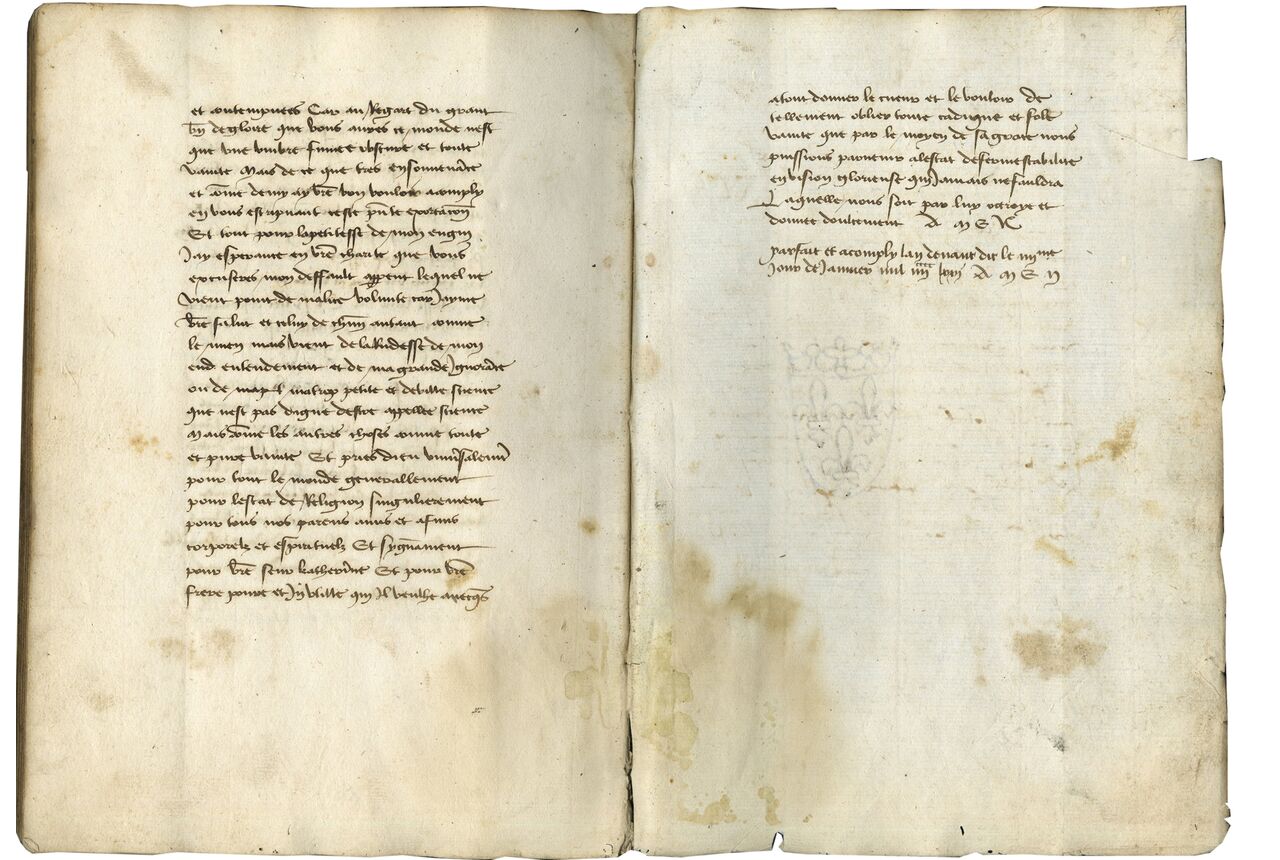 et contempnees Car au Regart du grant
bn̄ de gloire que vous aures ce monde nest
que vne vmbre fumee obscure et toute
vanite Mais de ce que tres ensonnenāce
et cōme demy ay vr̄e bon vouloir acomply
en vous escripuant ceste pn̄te exortacion̄
Et tout pour la petitesse de mon engin
Jay esperance en vr̄e charite que vous
excuseres mon deffault appent lequel ne
vient point de malice volunte car Jayme
vr̄e salut et celuy de chn̄n autant comme
le mien mais vient de la Rudesse de mon
entendement et de ma grande Ignorāce
ou de ma trop petite et debille science
que nest pas digne destre appellee science
Mais cōme les autres choses comme toute
et pure vanite Et pries dieu vniuersalemēt
pour tout le monde generallement
pour lestat de Religion singulierement
pour tous nos parens amis et afins
corporelz et espirituelz Et sygnāment
pour vr̄e seur katherine Et pour vr̄e
frere poure et Invtille qui Il veulhe auecq̄s
a tout donner le cueur et le vouloir de
tellement oblier toute caduque et fole
vanite que par le moyen de sa grace nous
puissions paruenir a lestat de fermestabilite
en vision glorieuse qui Jamais ne fauldra
Laquelle nous soit par luy octroye et
donnee doulcement A M E N
parfait et acomply lan deuant dit le
Jour de Januier mil iiii A M E N